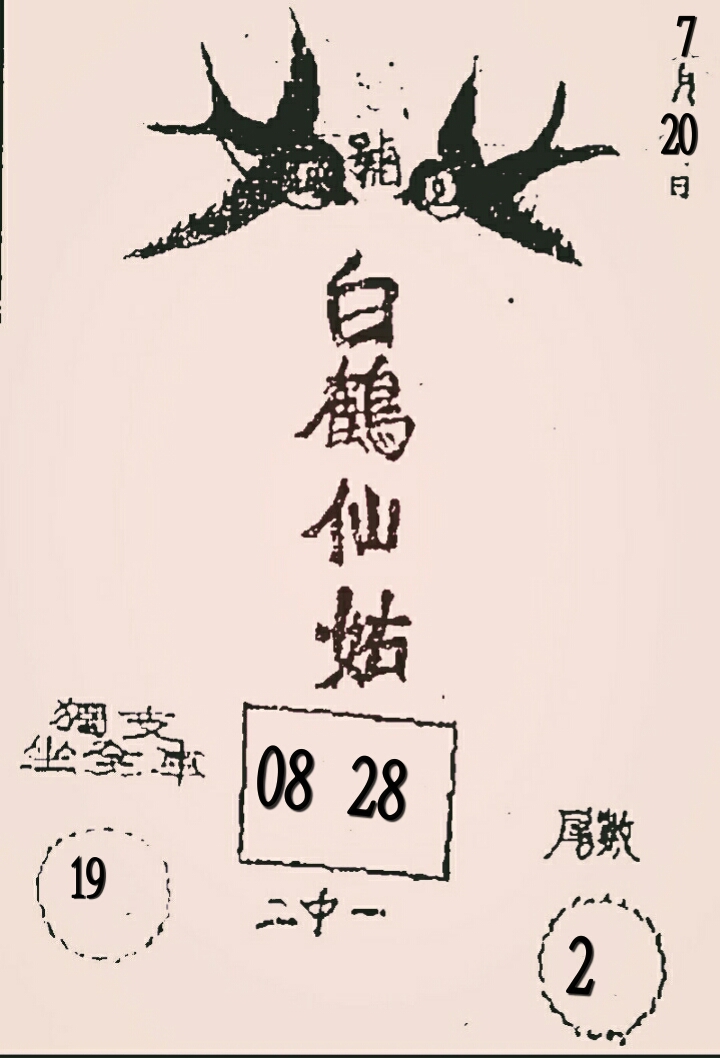 7
月
20
日
號
白
鶴
仙
姑
獨支
坐全車
08 28
19
二中一
尾數
2